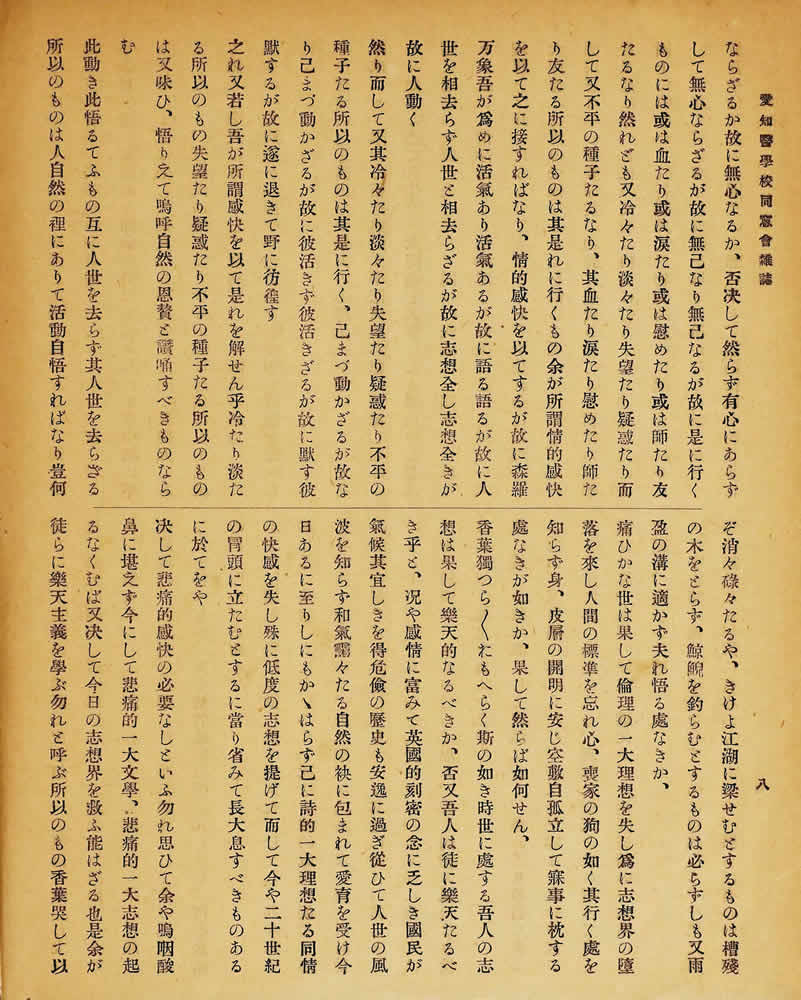 愛知醫學校同窓會雜誌
八
ならざるか故に無心なるか、否决して然らず有心にあらず
して無心ならざるが故に無己なり無己なるが故に是に行く
ものには或は血たり或は涙たり或は慰めたり或は師たり友
たるなり然れども又冷々たり淡々たり失望たり疑惑たり而
して又不平の種子たるなり、其血たり涙たり慰めたり師た
り友たる所以のものは其是れに行くもの余が所謂情的感快
を以て之に接すればなり、情的感快を以てするが故に森羅
万象吾が爲めに活氣あり活氣あるが故に語る語るが故に人
世を相去らず人世と相去らざるが故に志想全し志想全きが
故に人動く
然り而して又其冷々たり淡々たり失望たり疑惑たり不平の
種子たる所以のものは其是に行く、己まづ動かざるが故な
り己まづ動かざるが故に彼活きず彼活きざるが故に默す彼
默するが故に遂に退きて野に彷徨す
之れ又若し吾が所謂感快を以て是れを解せん乎冷たり淡た
る所以のもの失望たり疑惑たり不平の種子たる所以のもの
は又味ひ、悟りえて嗚呼自然の恩賛と讚誦すべきものなら
む
此動き此悟るてふもの互に人世を去らず其人世を去らざる
所以のものは人自然の裡にありて活動自悟すればなり豈何
ぞ消々碌々たるや、きけよ江湖に梁せむとするものは槽殘
の木をとらず、鯨鯢を釣らむとするものは必らずしも又雨
盈の溝に適かず夫れ悟る處なきか、
痛ひかな世は果して倫理の一大理想を失し爲に志想界の墮
落を來し人間の標準を忘れ心、喪家の狗の如く其行く處を
知らず身、皮層の開明に安じ空敷自孤立して寐事に枕する
處なきが如きか、果して然らば如何せん、
香葉獨つら〱おもへらく斯の如き時世に處する吾人の志
想は果して樂天的なるべきか、否又吾人は徒に樂天たるべ
き乎と、况や感情に富みて英國的刻密の念に乏しき國民が
氣候其宜しきを得危儉の歷史も安逸に過ぎ從ひて人世の風
波を知らず和氣靄々たる自然の袂に包まれて愛育を受け今
日あるに至りしにもかゝはらず己に詩的一大理想たる同情
の快感を失し殊に低度の志想を提げて而して今や二十世紀
の冐頭に立たむとするに當り省みて長大息すべきものある
に於てをや
决して悲痛的感快の必要なしといふ勿れ思ひて余や嗚咽酸
鼻に堪えず今にして悲痛的一大文學、悲痛的一大志想の起
るなくむば又决して今日の志想界を救ふ能はざる也是余が
徒らに樂天主義を學ぶ勿れと呼ぶ所以のもの香葉哭して以